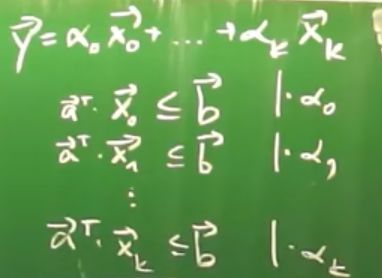 y⃗ = α₀ x⃗₀ + ... + α_k x⃗_k
a⃗ᵀ · x⃗₀ ≤ b⃗ | · α₀
a⃗ᵀ · x⃗₁ ≤ b⃗ | · α₁
⋮
a⃗ᵀ · x⃗_k ≤ b⃗ | · α_k